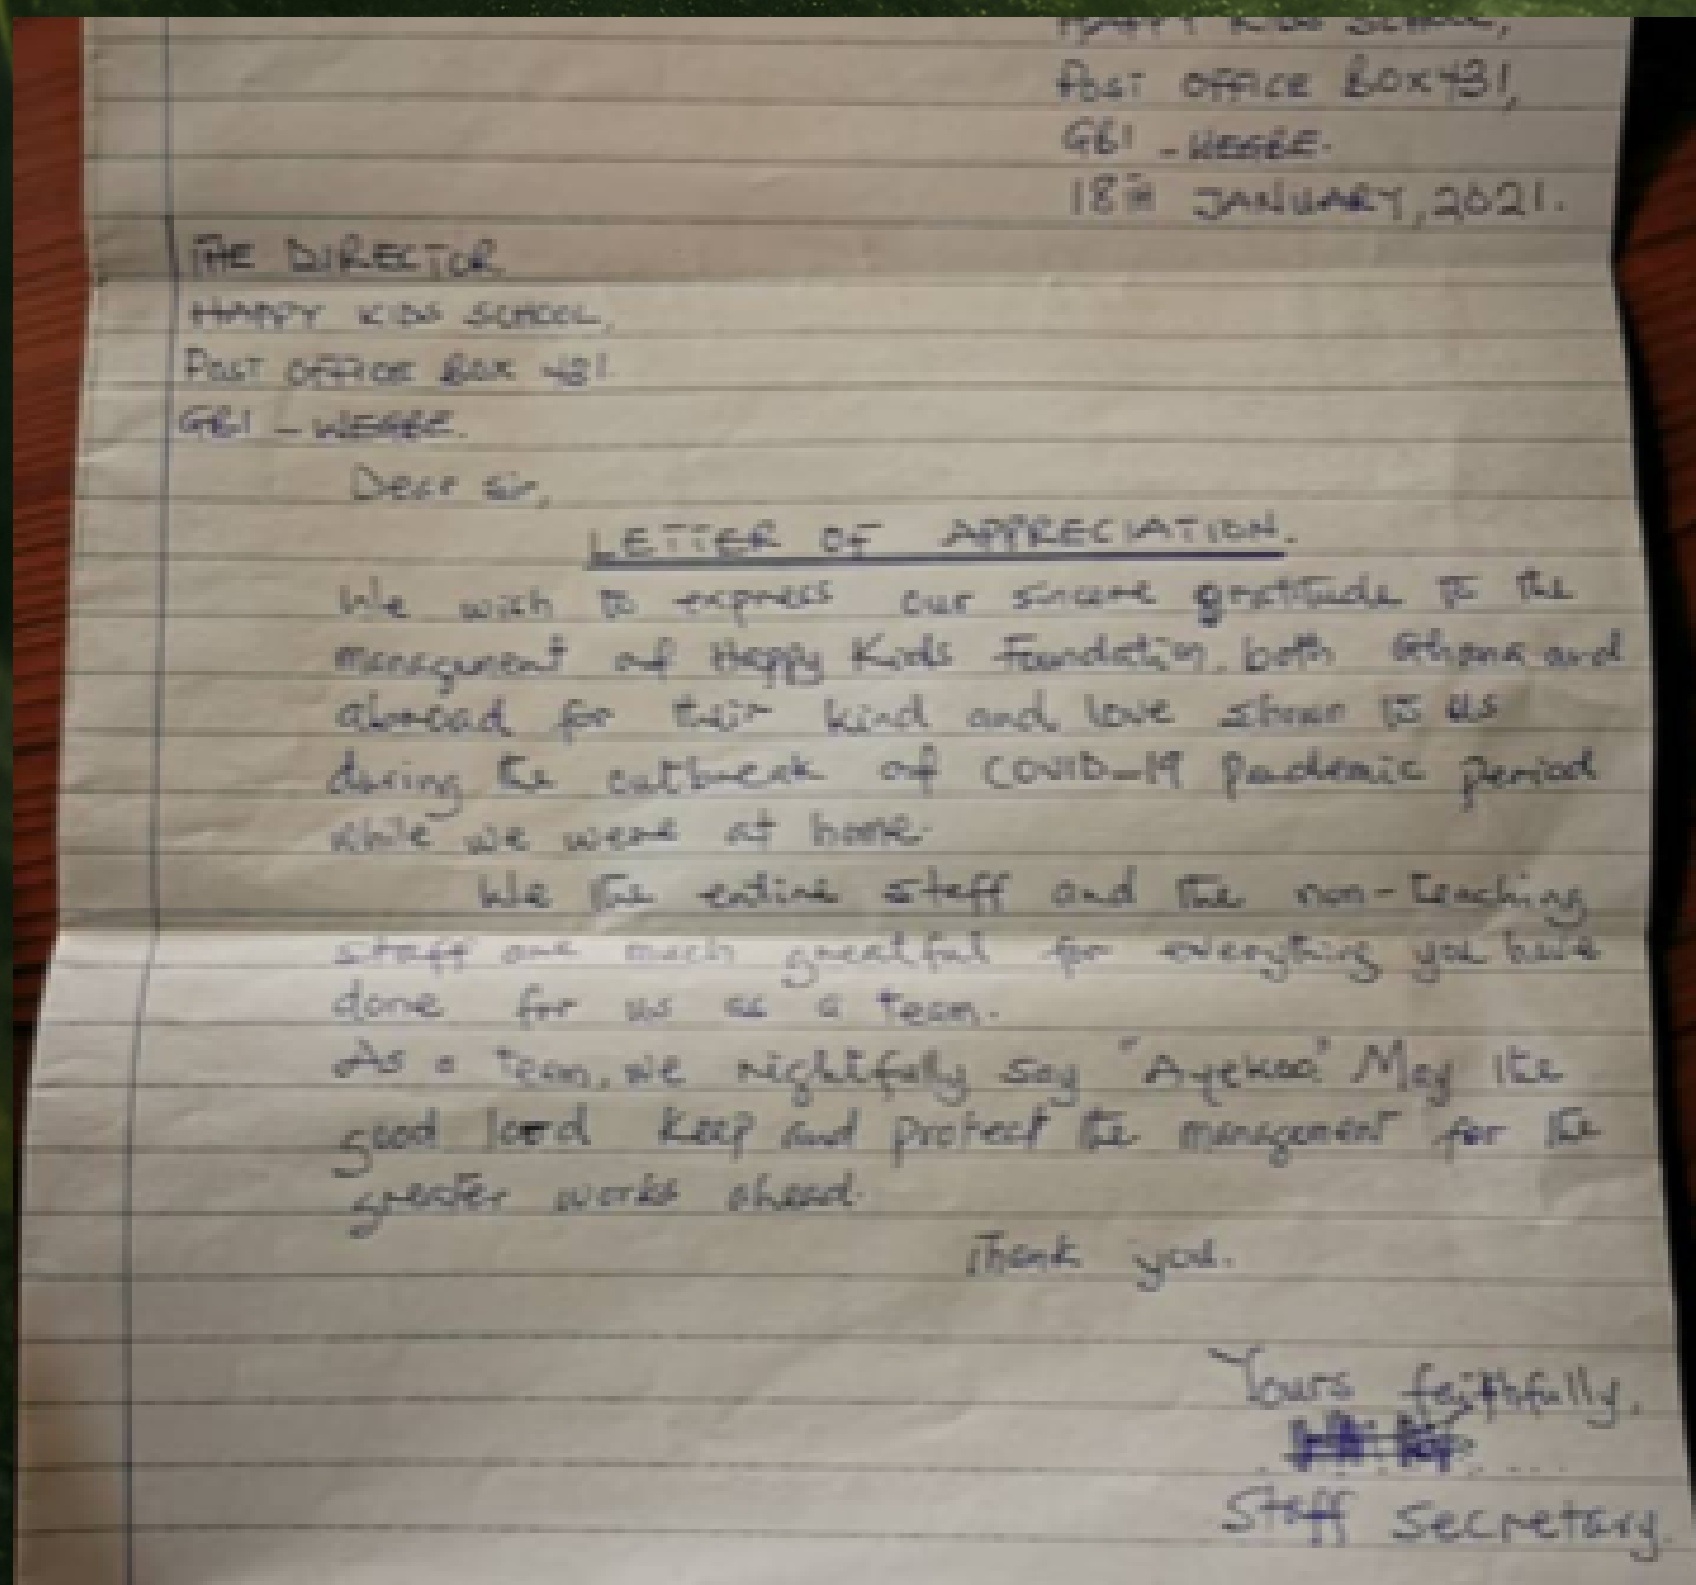 HAPPY KIDS SCHOOL,
POST OFFICE BOX 431,
GBI - WEGBE.
18TH JANUARY, 2021.
THE DIRECTOR
HAPPY KIDS SCHOOL,
POST OFFICE BOX 431
GBI - WEGBE.
Dear sir,
LETTER OF APPRECIATION.
We wish to express our sincere gratitude to the
management of Happy Kids Foundation, both Ghana and
abroad for their kind and love shown to us
during the outbreak of COVID-19 pandemic period
while we were at home.
We the entire staff and the non-teaching
staff are much greatful for everything you have
done for us as a team.
As a team, we rightfully say "Ayekoo." May the
good lord keep and protect the management for the
greater works ahead.
Thank you.
Yours faithfully,
Staff Secretary.